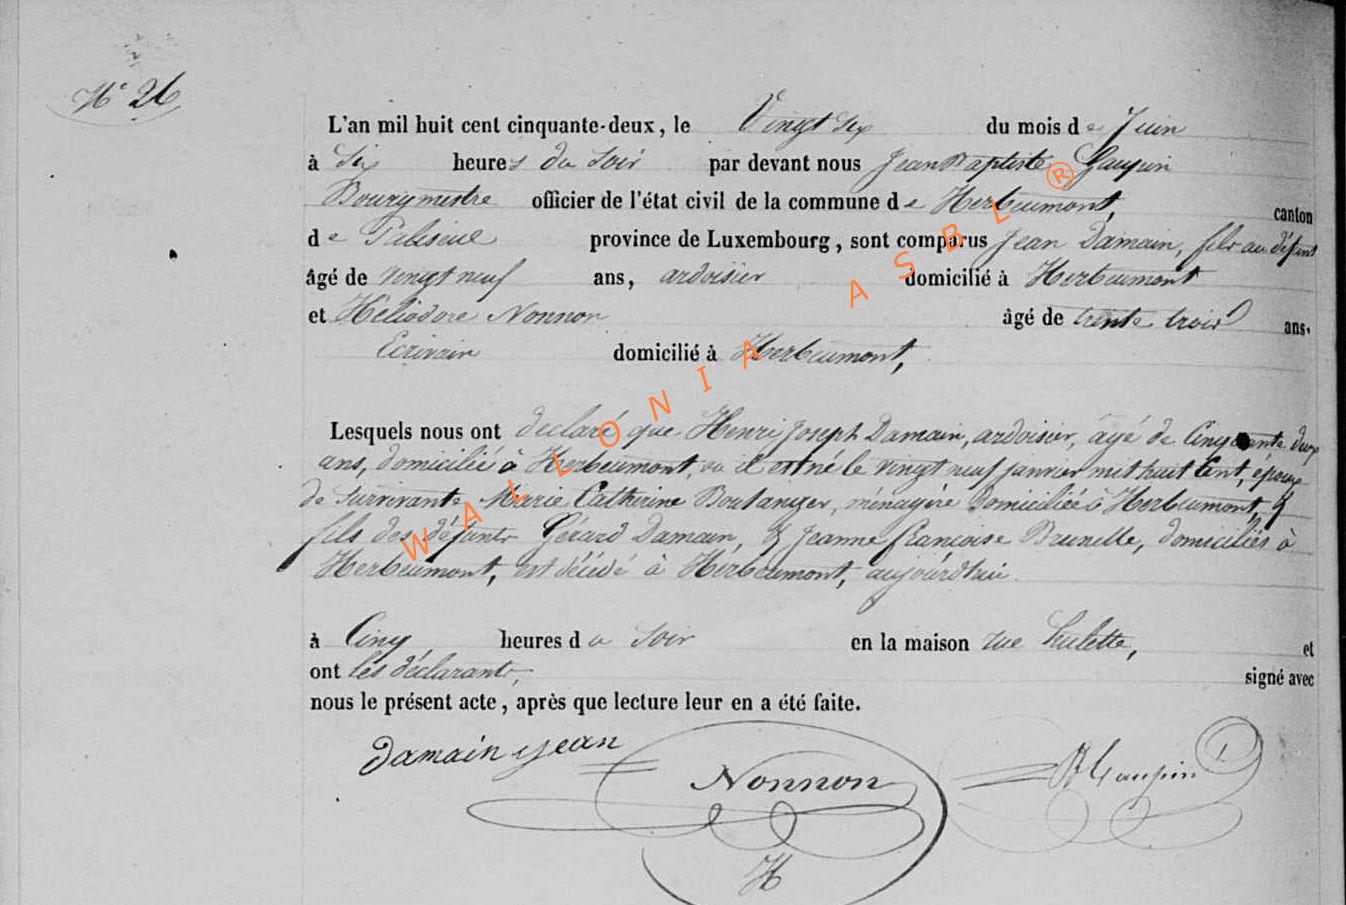 Nº 26
L'an mil huit cent cinquante-deux, le Vingt six du mois de Juin
à Six heures du Soir par devant nous Jean Baptiste Gaupin
Bourgmestre officier de l'état civil de la commune de Herbeumont, canton
de Paliseul province de Luxembourg, sont comparus Jean Damain, fils au défunt
âgé de vingt neuf ans, ardoisier domicilié à Herbeumont
et Héliodore Nonnon âgé de trente trois ans.
Ecrivain domicilié à Herbeumont,
Lesquels nous ont déclaré que Henri Joseph Damain, ardoisier, âgé de Cinquante deux
ans, domicilié à Herbeumont, où il est né le vingt neuf janvier mil huit Cent, époux
de Survivante Marie Catherine Boulanger, ménagère domiciliée à Herbeumont, &
fils des défunts Gérard Damain, & Jeanne françoise Brunelle, domiciliés à
Herbeumont, est décédé à Herbeumont, aujourd'hui
à Cinq heures du Soir en la maison rue hulette, et
ont les déclarants, signé avec
nous le présent acte, après que lecture leur en a été faite.
Damain Jean
Nonnon
JB Gaupin
H
WALLONIA ASBL ®